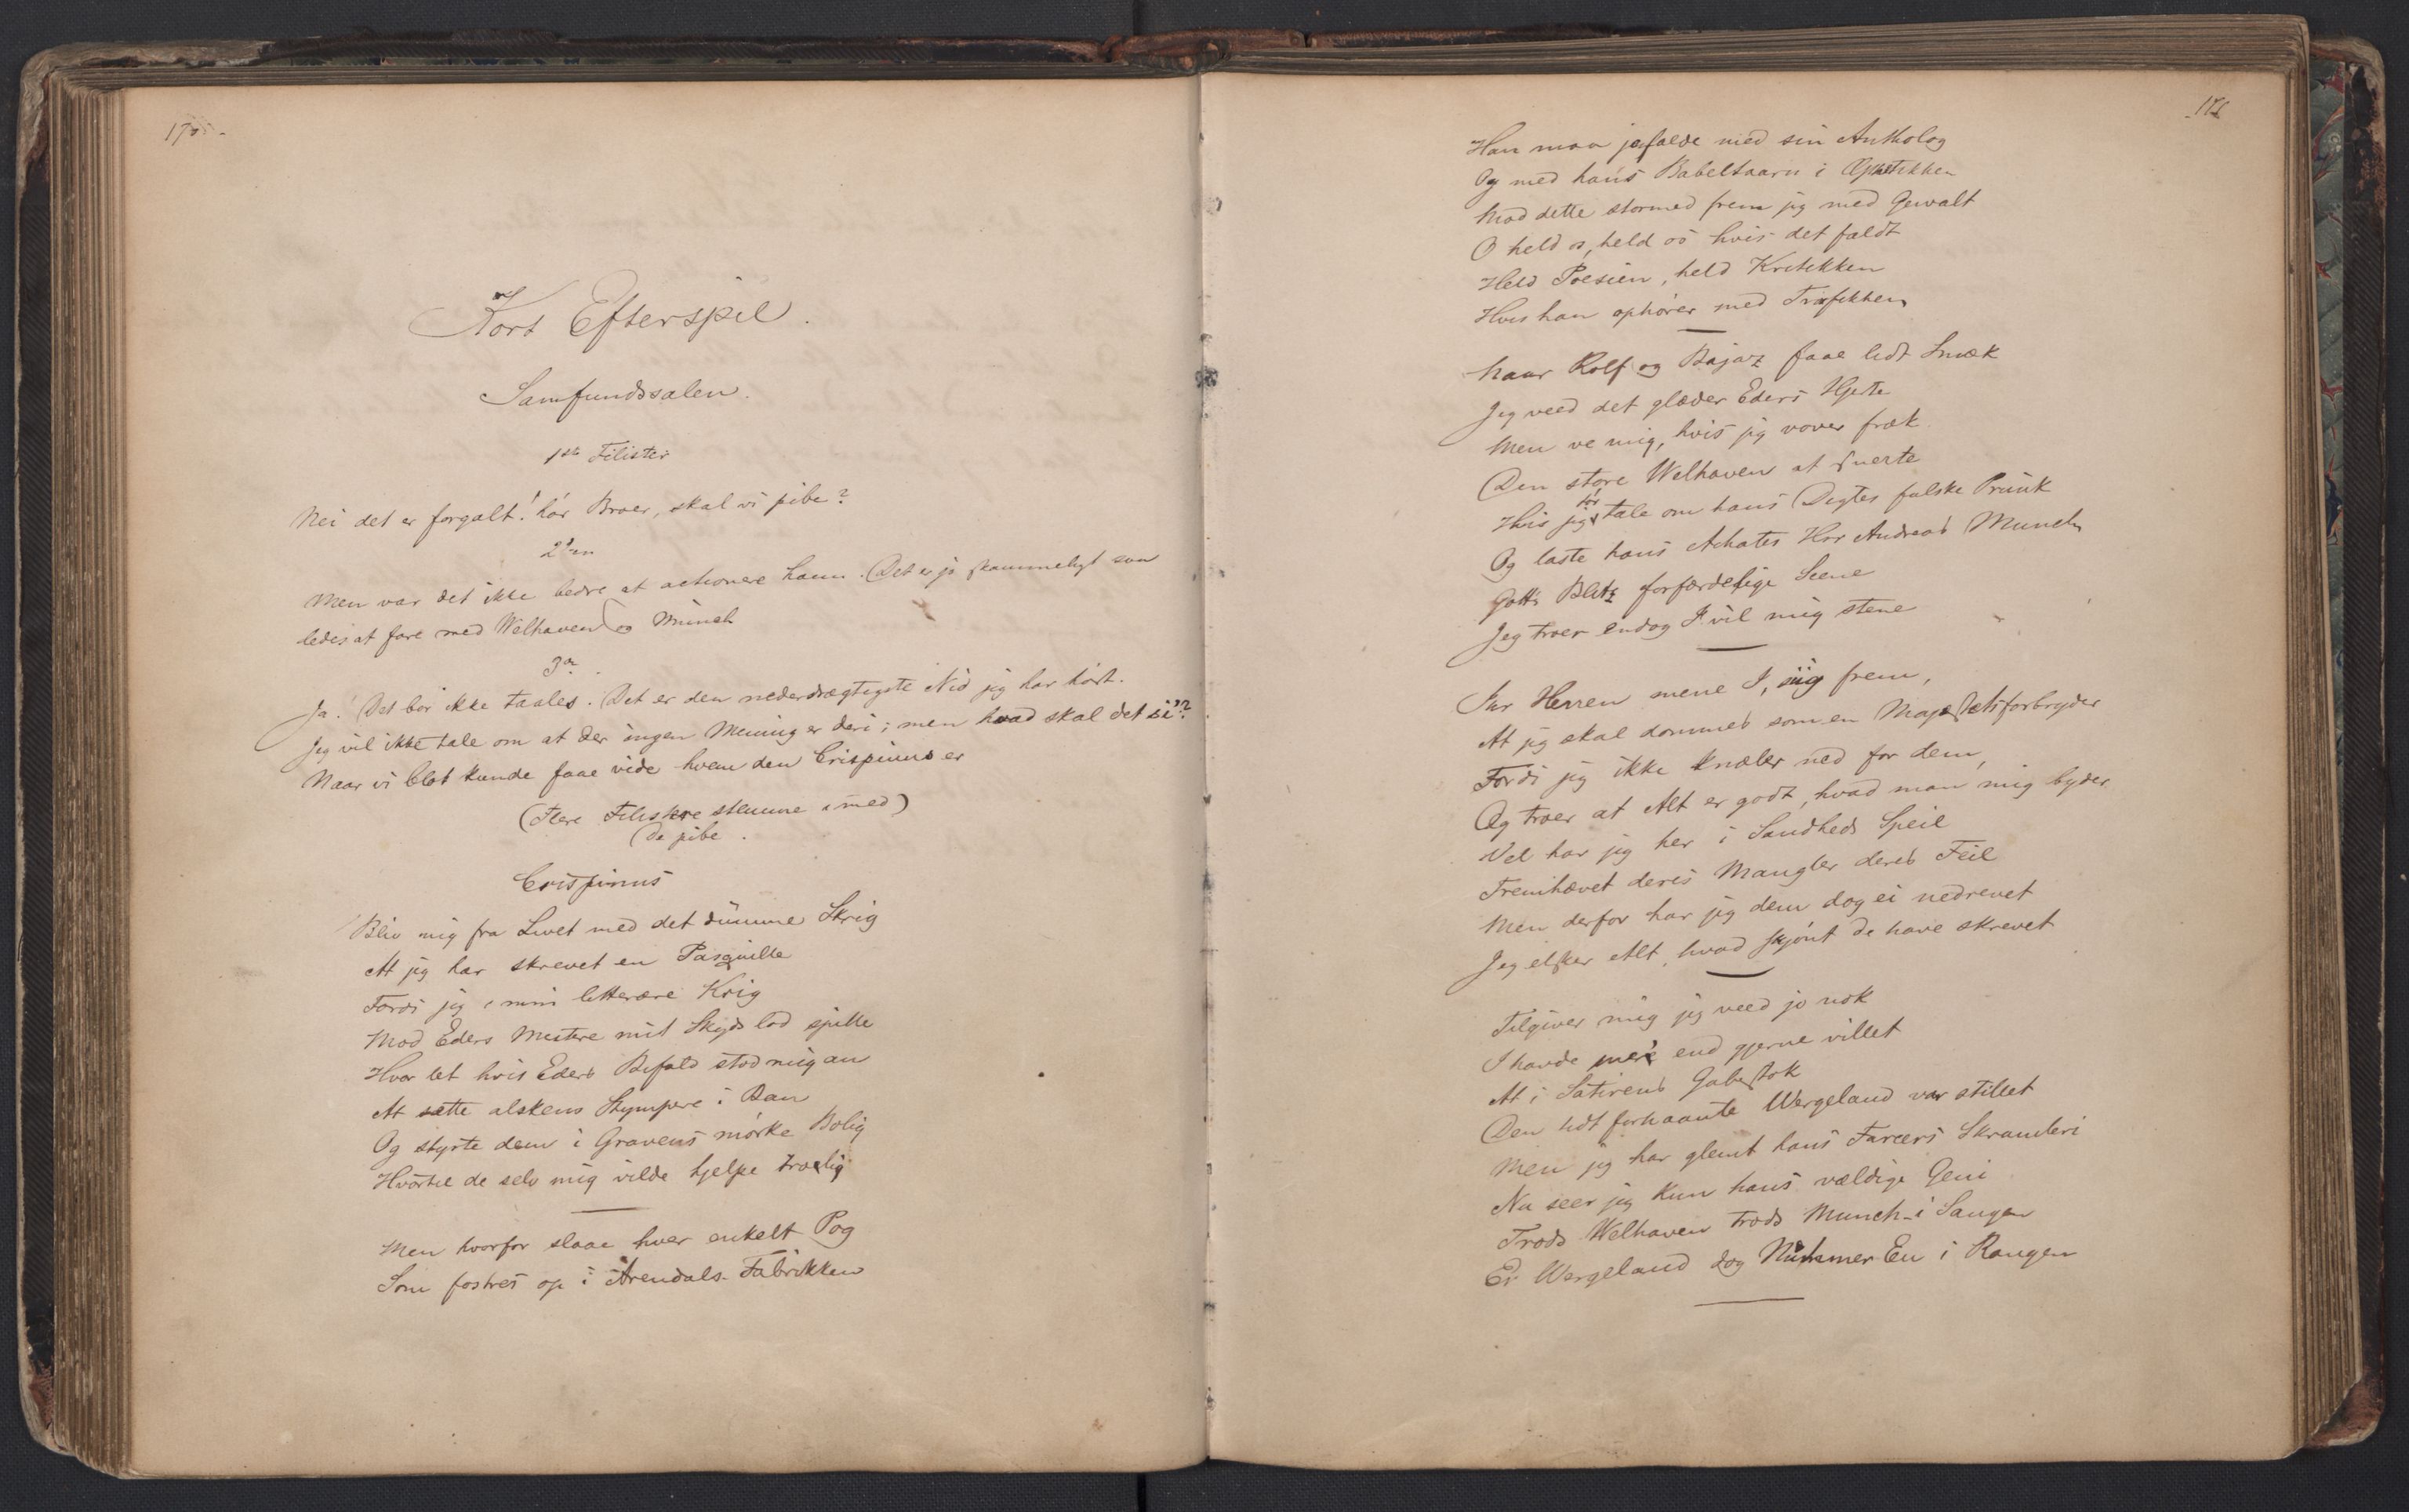 170
Kort Efterspil.
Samfundssalen.
1ste Filister
Nei det er forgalt! hør Broer, skal vi pibe?
2den
Men var det ikke bedre at actionere ham. Det er jo skammeligt saa
ledes at fare med Welhaven og Münch
3die
Ja! Det bør ikke taales. Det er den nederdrægtigste Nid jeg har hørt.
Jeg vil ikke tale om at der ingen Mening er deri; men hvad skal det si'?
Naar vi blot kunde faae vide hvem den Crispinus er
(Flere Filistre stemme i med)
De pibe.
Crispinus
Bliv mig fra Livet med det dumme Skrig
At jeg har skrevet en Pasquille
Fordi jeg i min litterære Krig
Mod Eders Mestere mit Skyds lod spille
Hvor let hvis Eders Bifald stod mig an
At sætte alskens Stympere i Ban
Og styrte dem i Gravens mørke Bolig
Hvortil de selv mig vilde hjelpe trolig
Men hvorfor slaae hver enkelt Pog
Som fostres op i Arendals-Fabrikken
171
Han maa jo falde med sin Antholog
Og med hans Babeltaarn i Æsthetikken
Mod dette stormed frem jeg med Gewalt
O held os, held os hvis det faldt
Held Poesien, held Kritikken
Hvis han ophører med Trafikken
Naar Rolf og Bajaz faae lidt Smæk
Jeg veed det glæder Eders Hjerte
Men ve mig, hvis jeg vover fræk
Den store Welhaven at snerte
Hvis jeg tør tale om hans Digtes falske Prunk
Og laste hans Achates Hor Andreas Munch
Gotts Blitz forfærdelige Scene
Jeg troer endog I vil mig stene
Herren mene I, siig frem,
At jeg skal dømmes som en Majestætsforbryder
Fordi jeg ikke knæler ned for dem,
Og troer at Alt er godt, hvad man mig byder
Vel har jeg her i Sandheds Speil
Fremhævet deres Mangler deres Feil
Men derfor har jeg dem dog ei nedrevet
Jeg elsker Alt, hvad skjønt de have skrevet
Tilgiver mig jeg veed jo nok
I havde mere end gjerne villet
At i Satirens Gabestok
Den lidt forhaante Wergeland var stillet
Men jeg har glemt hans Farcers Skranleri
Nu seer jeg kun hans vældige Geni
Trods Welhaven trods Munch i Sangen
Er Wergeland dog Nummer Een i Rangen